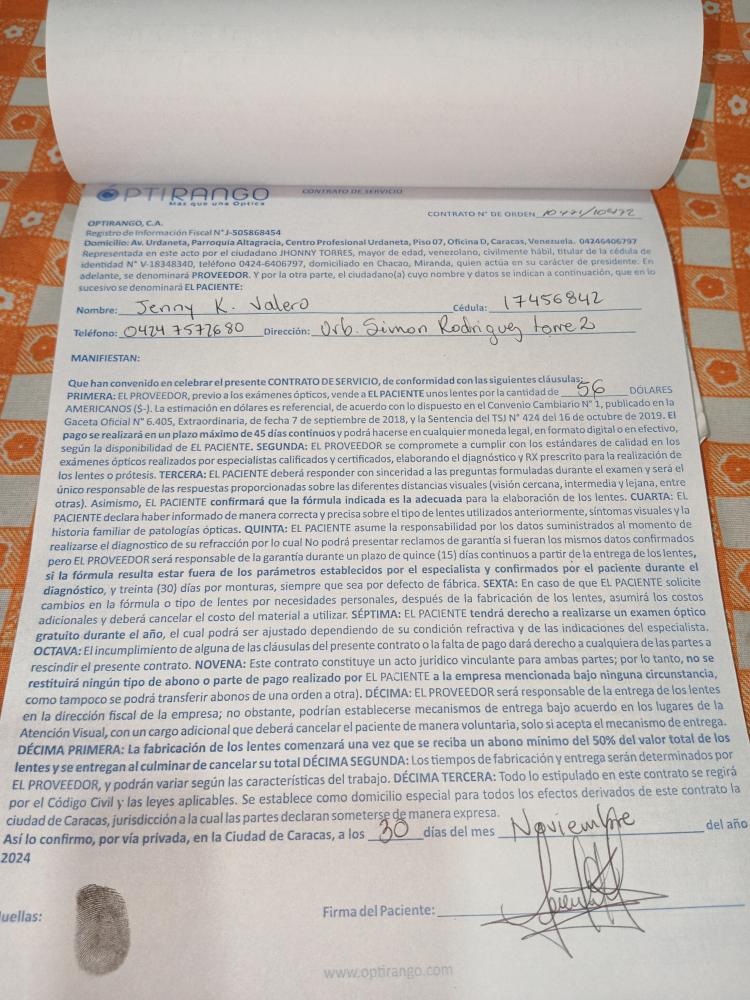 OPTIRANGO
Más que una Óptica
CONTRATO DE SERVICIO
CONTRATO N° DE ORDEN 10471/10472
OPTIRANGO, C.A.
Registro de Información Fiscal N°J-505868454
Domicilio: Av. Urdaneta, Parroquia Altagracia, Centro Profesional Urdaneta, Piso 07, Oficina D, Caracas, Venezuela. 04246406797
Representada en este acto por el ciudadano JHONNY TORRES, mayor de edad, venezolano, civilmente hábil, titular de la cédula de
identidad N° V-18348340, teléfono 0424-6406797, domiciliado en Chacao, Miranda, quien actúa en su carácter de presidente. En
adelante, se denominará PROVEEDOR. Y por la otra parte, el ciudadano(a) cuyo nombre y datos se indican a continuación, que en lo
sucesivo se denominará EL PACIENTE:
Nombre: Jenny K. Valero Cédula: 17456842
Teléfono: 0424 7572680 Dirección: Urb. Simon Rodriguez torre 2
MANIFIESTAN:
Que han convenido en celebrar el presente CONTRATO DE SERVICIO, de conformidad con las siguientes cláusulas:
PRIMERA: EL PROVEEDOR, previo a los exámenes ópticos, vende a EL PACIENTE unos lentes por la cantidad de 56 DÓLARES
AMERICANOS ($-). La estimación en dólares es referencial, de acuerdo con lo dispuesto en el Convenio Cambiario N° 1, publicado en la
Gaceta Oficial N° 6.405, Extraordinaria, de fecha 7 de septiembre de 2018, y la Sentencia del TSJ N° 424 del 16 de octubre de 2019. El
pago se realizará en un plazo máximo de 45 días continuos y podrá hacerse en cualquier moneda legal, en formato digital o en efectivo,
según la disponibilidad de EL PACIENTE. SEGUNDA: EL PROVEEDOR se compromete a cumplir con los estándares de calidad en los
exámenes ópticos realizados por especialistas calificados y certificados, elaborando el diagnóstico y RX prescrito para la realización de
los lentes o prótesis. TERCERA: EL PACIENTE deberá responder con sinceridad a las preguntas formuladas durante el examen y será el
único responsable de las respuestas proporcionadas sobre las diferentes distancias visuales (visión cercana, intermedia y lejana, entre
otras). Asimismo, EL PACIENTE confirmará que la fórmula indicada es la adecuada para la elaboración de los lentes. CUARTA: EL
PACIENTE declara haber informado de manera correcta y precisa sobre el tipo de lentes utilizados anteriormente, síntomas visuales y la
historia familiar de patologías ópticas. QUINTA: EL PACIENTE asume la responsabilidad por los datos suministrados al momento de
realizarse el diagnostico de su refracción por lo cual No podrá presentar reclamos de garantía si fueran los mismos datos confirmados
pero EL PROVEEDOR será responsable de la garantía durante un plazo de quince (15) días continuos a partir de la entrega de los lentes,
si la fórmula resulta estar fuera de los parámetros establecidos por el especialista y confirmados por el paciente durante el
diagnóstico, y treinta (30) días por monturas, siempre que sea por defecto de fábrica. SEXTA: En caso de que EL PACIENTE solicite
cambios en la fórmula o tipo de lentes por necesidades personales, después de la fabricación de los lentes, asumirá los costos
adicionales y deberá cancelar el costo del material a utilizar. SÉPTIMA: EL PACIENTE tendrá derecho a realizarse un examen óptico
gratuito durante el año, el cual podrá ser ajustado dependiendo de su condición refractiva y de las indicaciones del especialista.
OCTAVA: El incumplimiento de alguna de las cláusulas del presente contrato o la falta de pago dará derecho a cualquiera de las partes a
rescindir el presente contrato. NOVENA: Este contrato constituye un acto jurídico vinculante para ambas partes; por lo tanto, no se
restituirá ningún tipo de abono o parte de pago realizado por EL PACIENTE a la empresa mencionada bajo ninguna circunstancia,
como tampoco se podrá transferir abonos de una orden a otra). DÉCIMA: EL PROVEEDOR será responsable de la entrega de los lentes
en la dirección fiscal de la empresa; no obstante, podrían establecerse mecanismos de entrega bajo acuerdo en los lugares de la
Atención Visual, con un cargo adicional que deberá cancelar el paciente de manera voluntaria, solo si acepta el mecanismo de entrega.
DÉCIMA PRIMERA: La fabricación de los lentes comenzará una vez que se reciba un abono mínimo del 50% del valor total de los
lentes y se entregan al culminar de cancelar su total DÉCIMA SEGUNDA: Los tiempos de fabricación y entrega serán determinados por
EL PROVEEDOR, y podrán variar según las características del trabajo. DÉCIMA TERCERA: Todo lo estipulado en este contrato se regirá
por el Código Civil y las leyes aplicables. Se establece como domicilio especial para todos los efectos derivados de este contrato la
ciudad de Caracas, jurisdicción a la cual las partes declaran someterse de manera expresa.
Así lo confirmo, por vía privada, en la Ciudad de Caracas, a los 30 días del mes Noviembre del año
2024
uellas:
Firma del Paciente:
www.optirango.com